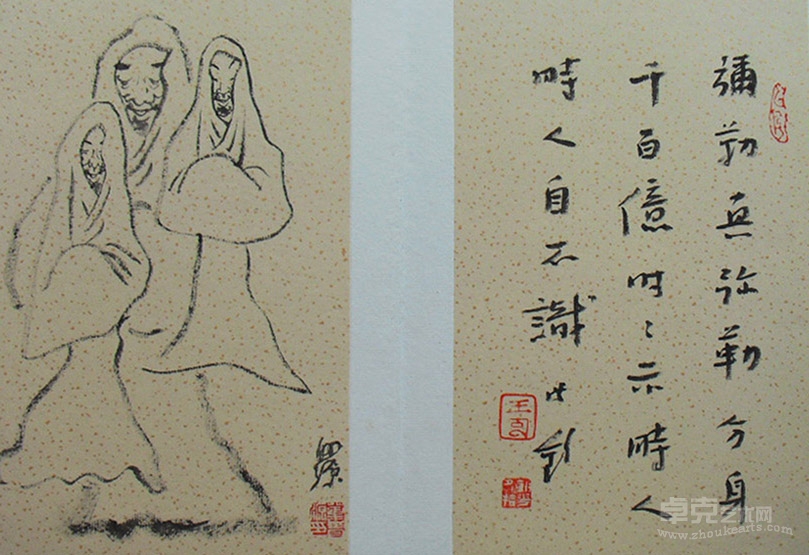 彌勒真弥勒分身
千百億时〻示時人
時人自不識
卓克艺术网
www.zhoukearts.com